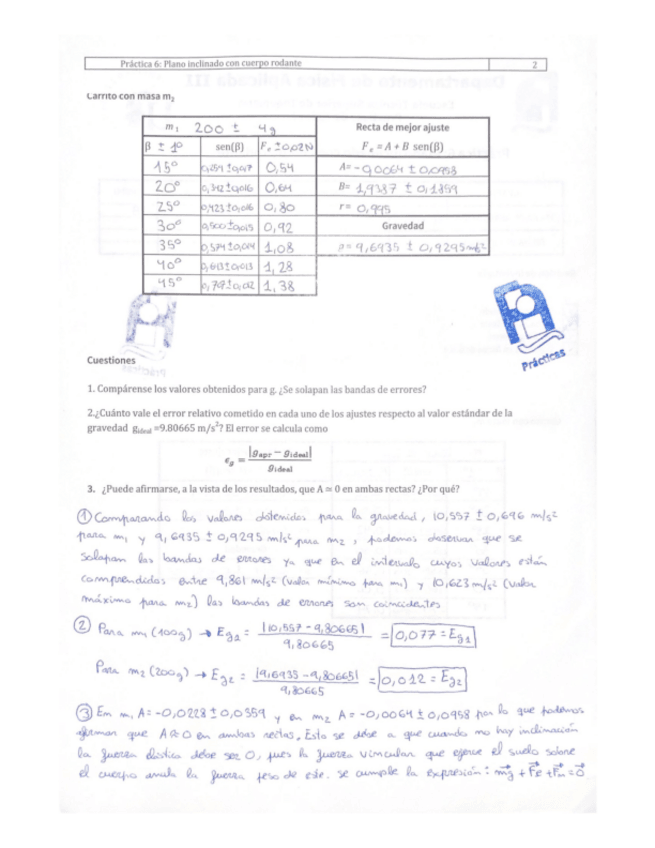 Práctica 6: Plano inclinado con cuerpo rodante 2
Carrito con masa m₂
m₂ 200 ± 4g Recta de mejor ajuste
β ± 1º sen(β) Fₑ ±0,02N Fₑ = A + B sen(β)
15º 0,54 A= -0,0064 ± 0,0958
20º 0,342±0,016 0,64 B= 1,9387 ± 0,1859
25º 0,423±0,016 0,80 r= 0,995
30º 0,500±0,015 0,92 Gravedad
35º 0,574±0,014 1,08 g= 9,6935 ± 0,9295 m/s²
40º 0,643±0,013 1,28
45º 0,707±0,012 1,38
Prácticas
Cuestiones
1. Compárense los valores obtenidos para g. ¿Se solapan las bandas de errores?
2.¿Cuánto vale el error relativo cometido en cada uno de los ajustes respecto al valor estándar de la
gravedad g_ideal =9.80665 m/s²? El error se calcula como
ϵ_g = |g_apr − g_ideal| / g_ideal
3. ¿Puede afirmarse, a la vista de los resultados, que A ≃ 0 en ambas rectas? ¿Por qué?
① Comparando los valores obtenidos para la gravedad, 10,557 ± 0,696 m/s²
para m₁ y 9,6935 ± 0,9295 m/s² para m₂, podemos observar que se
solapan las bandas de errores ya que en el intervalo cuyos valores están
comprendidos entre 9,861 m/s² (valor mínimo para m₁) y 10,623 m/s² (valor
máximo para m₂) las bandas de errores son coincidentes
② Para m₁ (100g) → Eg₁ = |10,557 - 9,80665| / 9,80665 = 0,077 = Eg₁
Para m₂ (200g) → Eg₂ = |9,6935 - 9,80665| / 9,80665 = 0,012 = Eg₂
③ En m₁ A= -0,0228 ± 0,0359 y en m₂ A= -0,0064 ± 0,0958 por lo que podemos
afirmar que A≈0 en ambas rectas. Esto se debe a que cuando no hay inclinación
la fuerza elástica debe ser 0, pues la fuerza vincular que ejerce el suelo sobre
el cuerpo anula la fuerza peso de este. se cumple la expresión: mg + Fe + Fn = 0